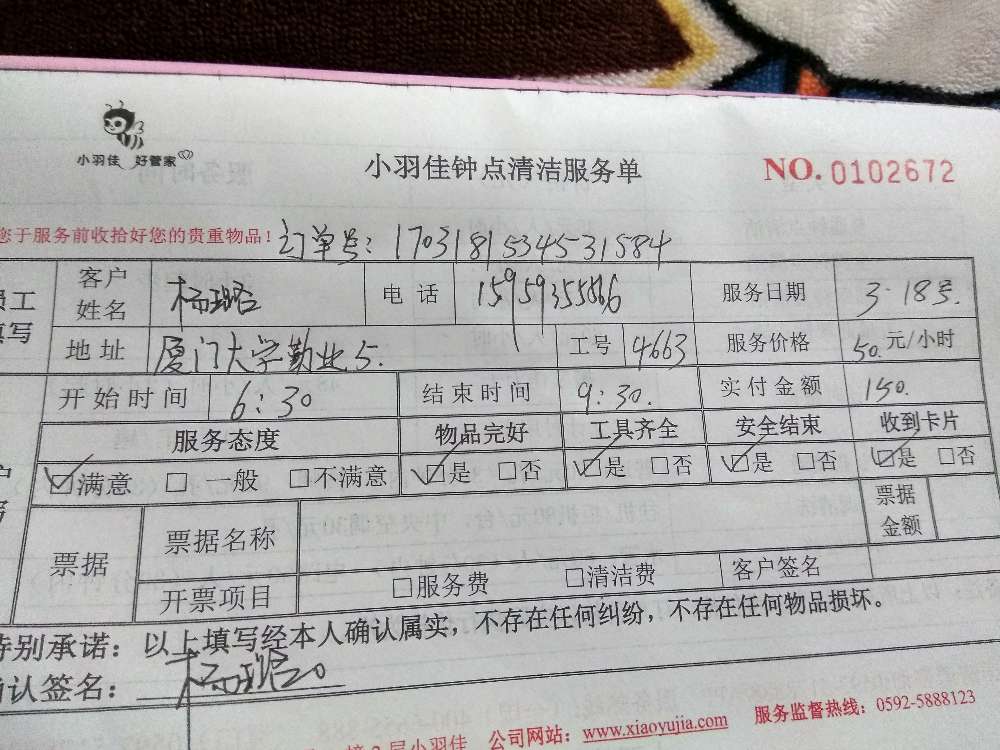 小羽佳 好管家
小羽佳钟点清洁服务单
NO. 0102672
您于服务前收拾好您的贵重物品！ 订单号：1703181534531584
员工填写
客户姓名 杨璐 电话 15959355566 服务日期 3·18号.
地址 厦门大学勤业5. 工号 4663 服务价格 50.元/小时
开始时间 6:30 结束时间 9:30. 实付金额 150.
服务态度 物品完好 工具齐全 安全结束 收到卡片
☑满意 □一般 □不满意 ☑是 □否 ☑是 □否 ☑是 □否 ☑是 □否
票据 票据名称 票据金额
开票项目 □服务费 □清洁费 客户签名
特别承诺：以上填写经本人确认属实，不存在任何纠纷，不存在任何物品损坏。
确认签名：杨璐
楼2层小羽佳 公司网站：www.xiaoyujia.com 服务监督热线：0592-5888123